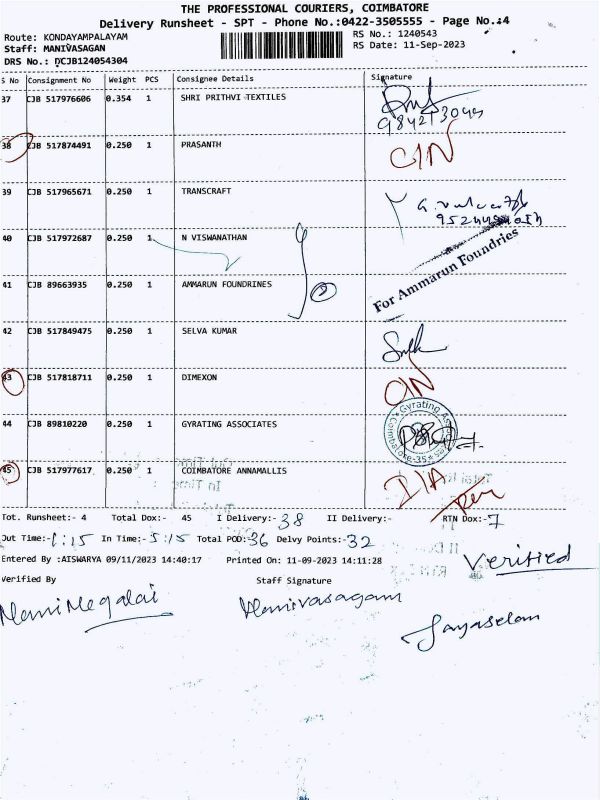 THE PROFESSIONAL COURIERS, COIMBATORE
Delivery Runsheet - SPT - Phone No.:0422-3505555 - Page No.:4
Route: KONDAYAMPALAYAM RS No.: 1240543
Staff: MANIVASAGAN RS Date: 11-Sep-2023
DRS No.: DCJB124054304
S No Consignment No Weight PCS Consignee Details Signature
37 CJB 517976606 0.354 1 SHRI PRITHVI TEXTILES
38 CJB 517874491 0.250 1 PRASANTH C/N
39 CJB 517965671 0.250 1 TRANSCRAFT
40 CJB 517972687 0.250 1 N VISWANATHAN
For Ammarun Foundries
41 CJB 89663935 0.250 1 AMMARUN FOUNDRINES 2
42 CJB 517849475 0.250 1 SELVA KUMAR
43 CJB 517818711 0.250 1 DIMEXON C/N
44 CJB 89810220 0.250 1 GYRATING ASSOCIATES Gyrating Coimbatore-35
45 CJB 517977617 0.250 1 COIMBATORE ANNAMALLIS D/A
Tot. Runsheet:- 4 Total Dox:- 45 I Delivery:- 38 II Delivery:- RTN Dox:- 7
Out Time:- 1:15 In Time:- 5:15 Total POD:- 36 Delvy Points:- 32
Entered By :AISWARYA 09/11/2023 14:40:17 Printed On: 11-09-2023 14:11:28 Verified
Verified By Staff Signature
Manimegalai Manivasagam
Jayaselan